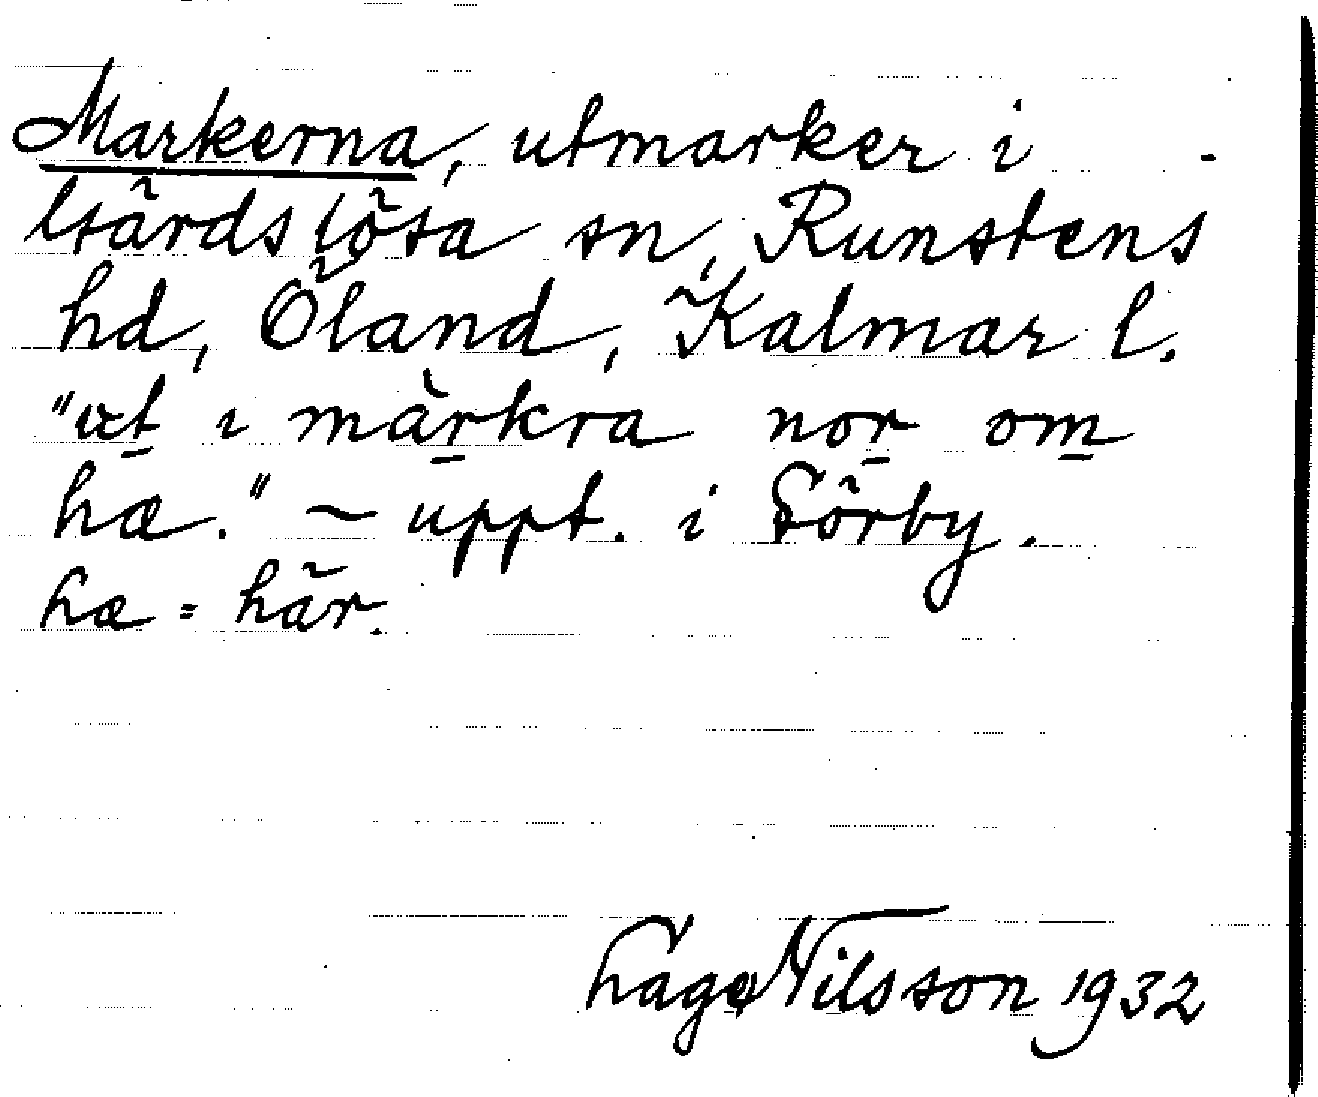 Markerna, utmarker i
Gärdslösa sn, Runstens
hd, Öland, Kalmar l.
"æt i màrkra nor om
hæ." ~ uppt. i Sörby.
hæ = här.
Lage Nilsson 1932